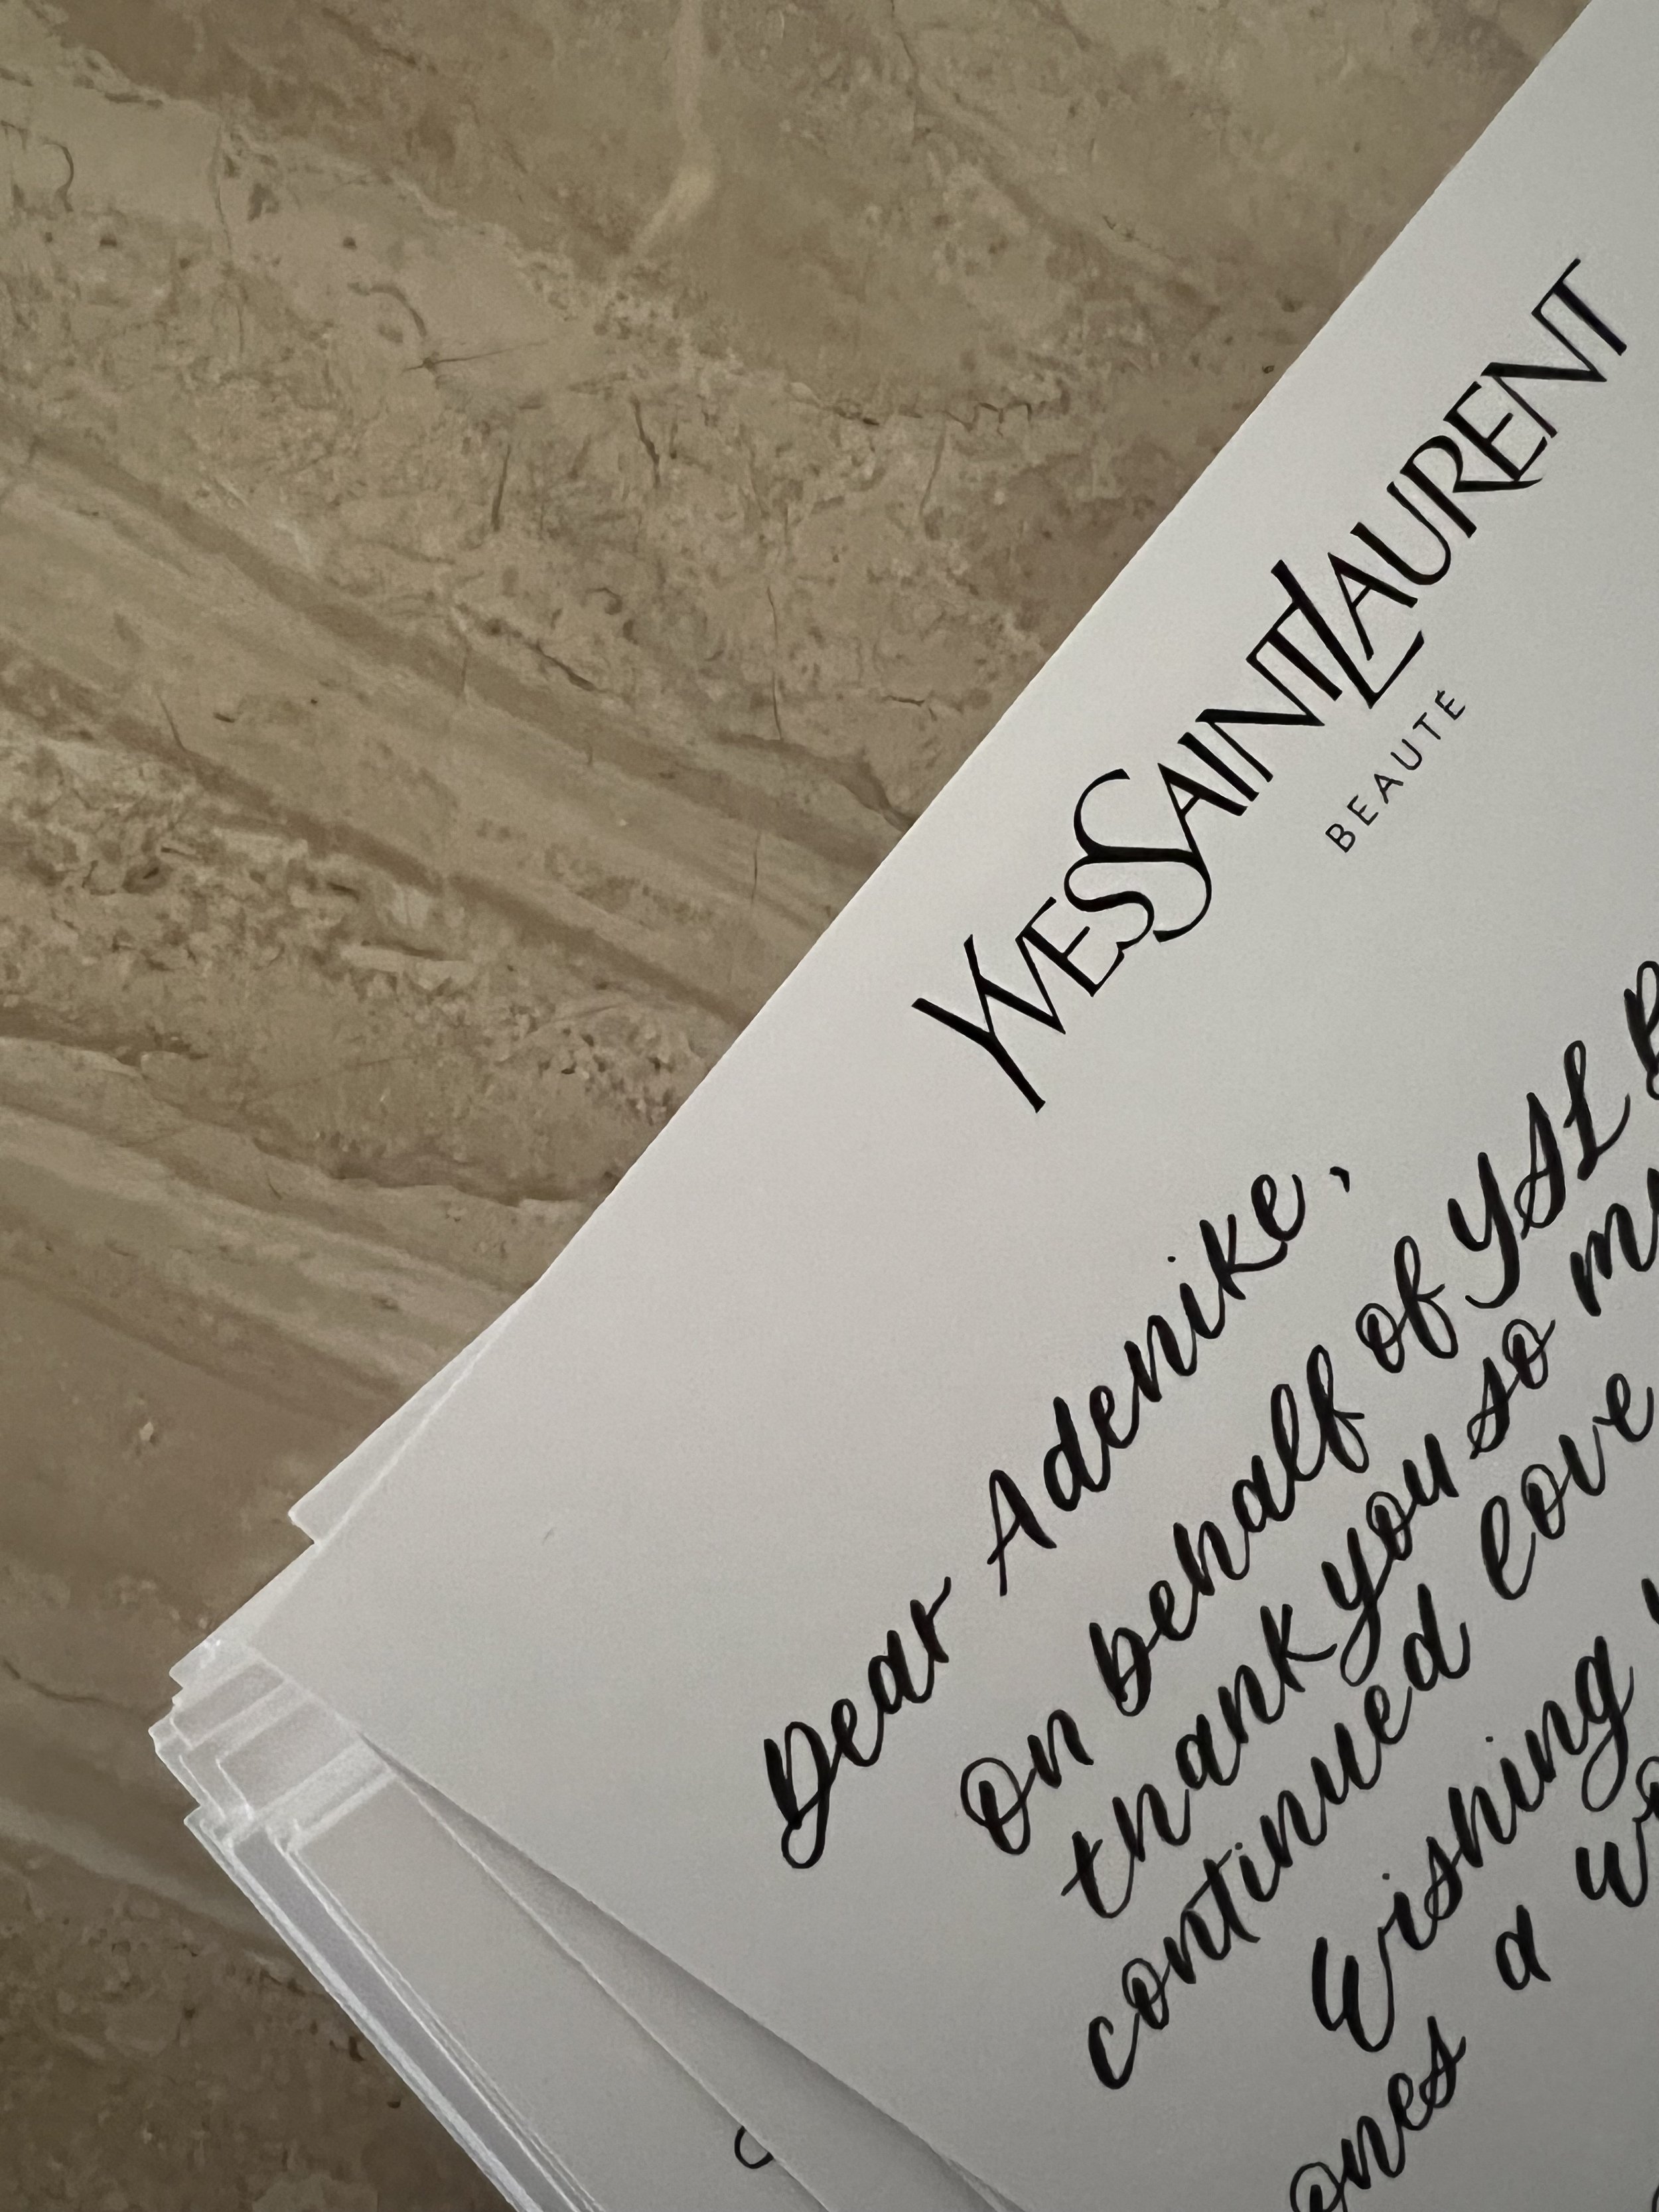 YVESSAINTLAURENT
BEAUTÉ
Dear Adenike,
On behalf of YSL
thank you so
continued love
Wishing
ones a